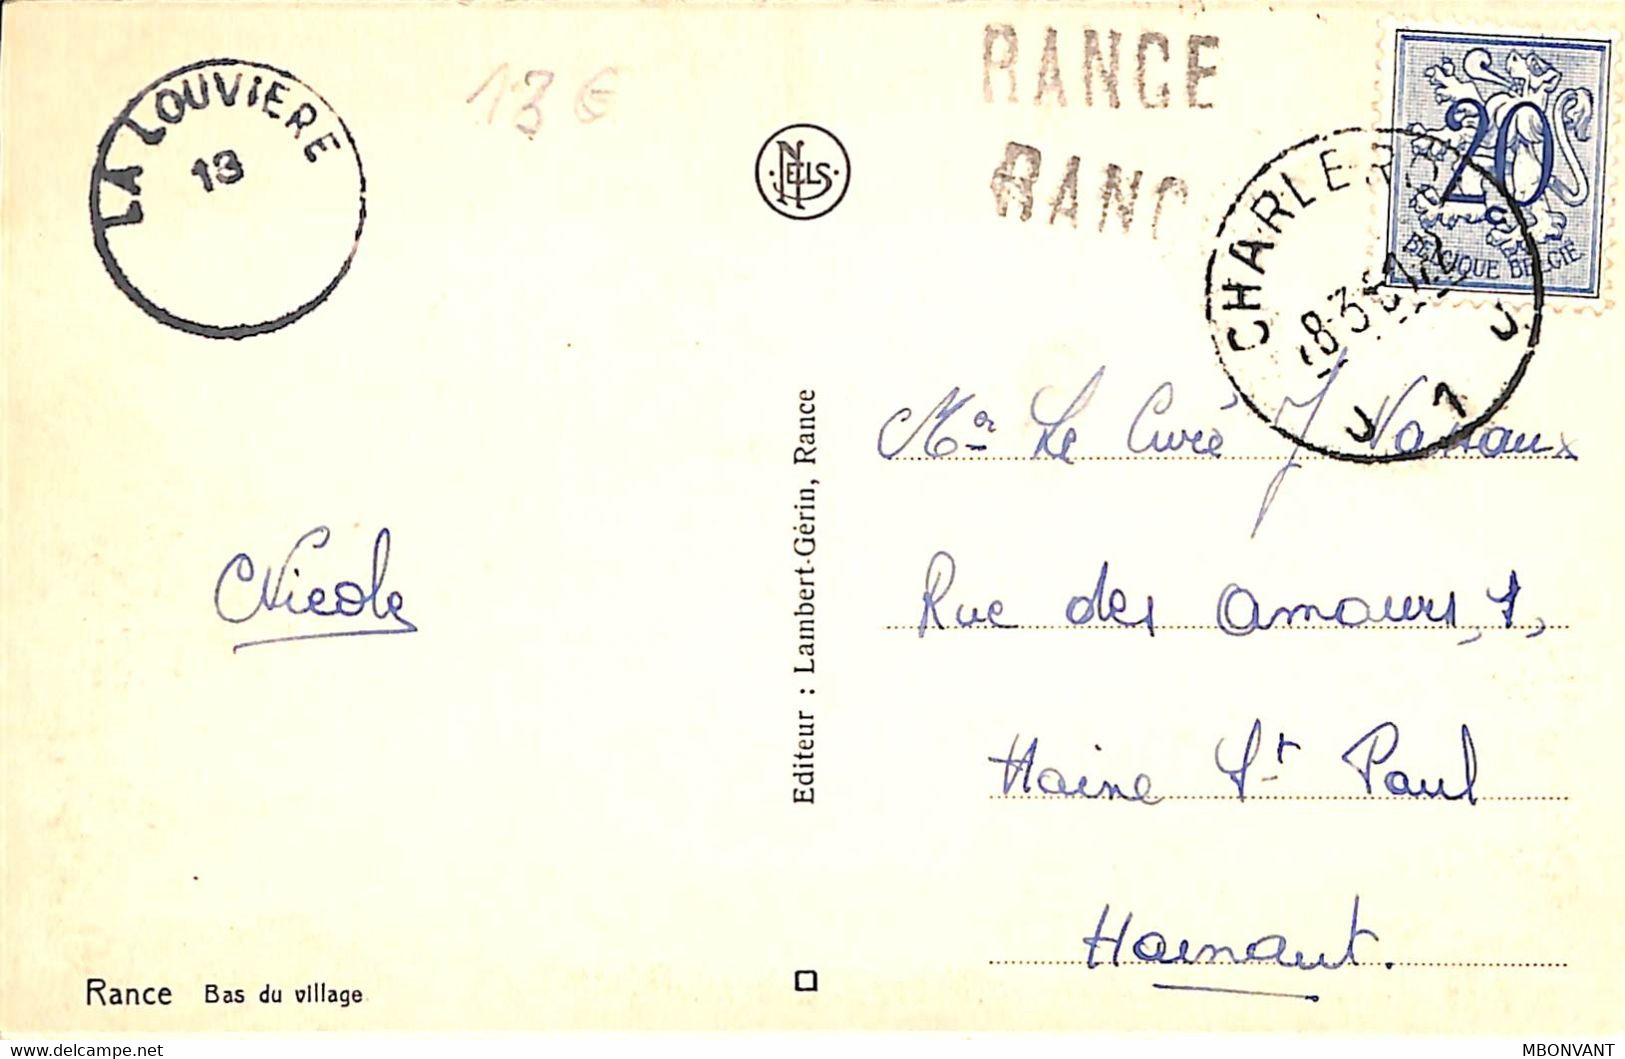 LA LOUVIERE
13
13 €
NELS
RANCE
RANC
20
BELGIQUE BELGIË
CHARLER
1
Mr Le Curé J
Rue des amours, 1,
Haine St Paul
Hainaut.
Nicole
Editeur : Lambert-Gérin, Rance
Rance Bas du village
delcampe.net
MBONVANT